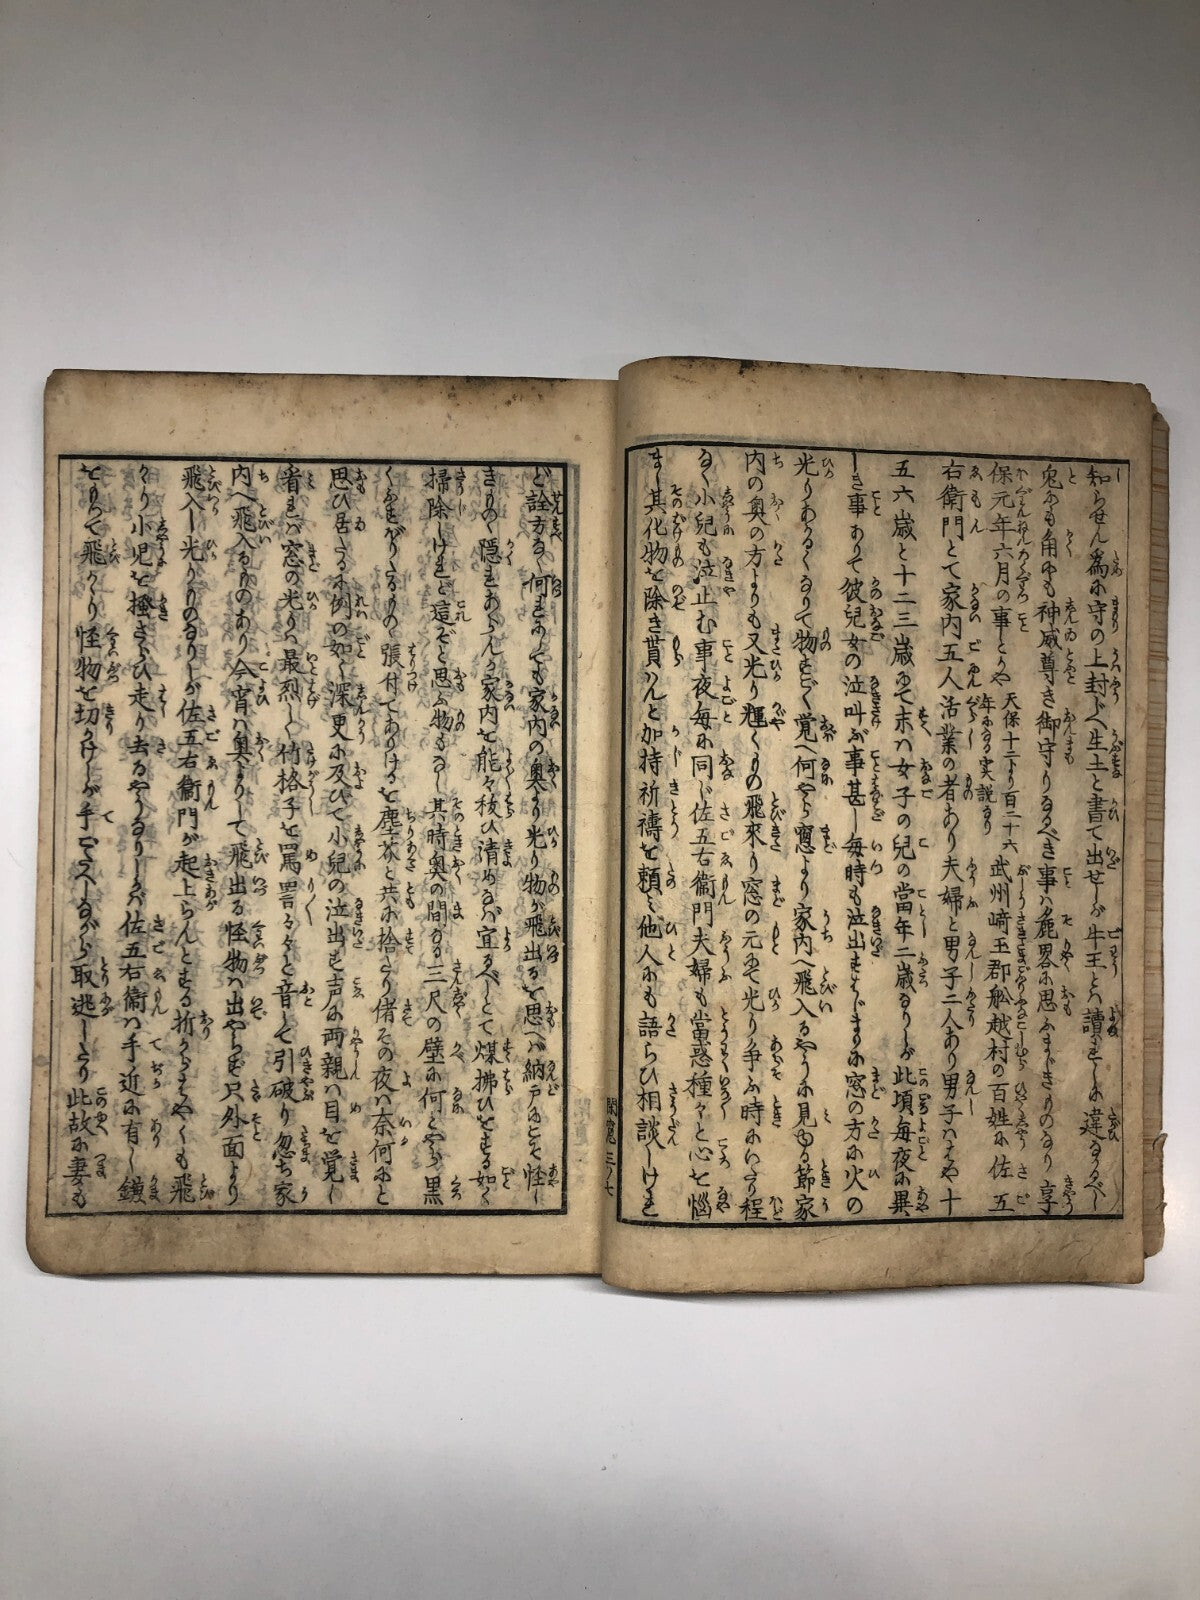 知らせん為に守の上封じへ生土と書て出せしが牛王とハ讀ますしに違なるべし
鬼にも角にも神威尊き御守りなるべき事ハ麁畧に思ふまじきものなり享
保元年六月の事とかや 天保十二より百二十六年になる実説なり 武州﨑玉郡舩越村の百姓に佐五
右衛門とて家内五人活業の者あり夫婦と男子二人あり男子ハはや十
五六歳と十二三歳にて末ハ女子の兒の當年二歳なりしが此頃毎夜に異
しき事ありて彼兒女の泣叫ぶ事甚し毎時も泣出すはじまりに窓の方に火の
光りあかくなりて物すごく覚へ何やら窓より家内へ飛入るやうに見ゆる節家
内の奥の方よりも又光り輝くもの飛來り窓の元にて光り争ふ時にいたり程
なく小兒も泣止む事夜毎に同じ佐五右衛門夫婦も當惑種々と心を惱
まし其化物を除き貰ハんと加持祈禱を頼ミ他人にも語らひ相談しけれ
閑窓 三ノ七
ど詮方なく何れにても家内の奥より光り物が飛出るを思へバ納戸にこそ怪し
きもの隠れあらんか家内を能々秡ひ清めなバ宜かるべしとて煤拂ひをする如く
掃除しけれど這ぞと思ふ物もなし其時奥の間なる三尺の壁に何とやら黒
くふすぼりたるもの張付てありけるを塵芥と共に捨たり偖その夜ハ奈何にと
思ひ居たるに例の如く深更に及びて小兒の泣出す声に両親ハ目を覚し
看れバ窓の光りハ最烈しく竹格子を罵詈々々と音して引破り忽ち家
内へ飛入るものあり今宵ハ奥よりして飛出る怪物ハ出やらず只外面より
飛入し光りのなりしが佐五右衛門が起上らんとする折からはやくも飛
かゝり小児を搔さらひ走り去るやうなりしかバ佐五右衛ハ手近に有し鎌
をとつて飛かゝり怪物を切かけしが手ごたへしながら取逃したり此故に妻も